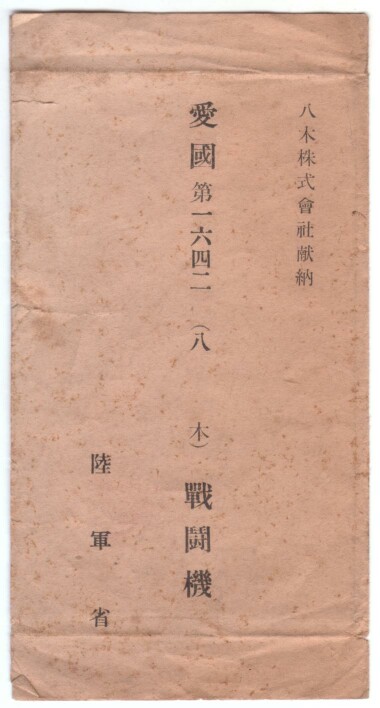 八木株式會社献納
愛國第一六四二（八　木）戰鬪機
陸軍省